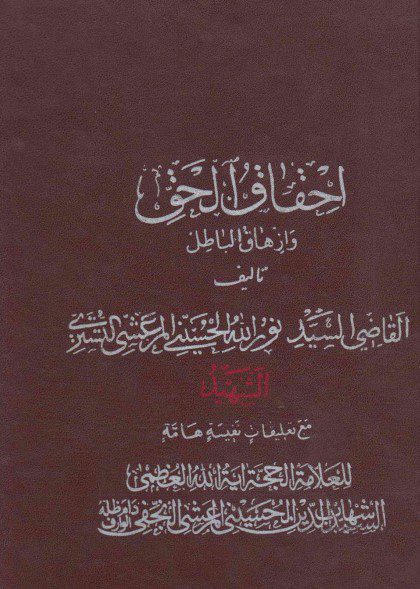 احقاق الحق
وازهاق الباطل
تاليف
القاضي السيد نور الله الحسيني المرعشي التستري
الشهيد
مع تعليقات نفيسة هامة
للعلامة الحجة آية الله العظمى
السيد شهاب الدين الحسيني المرعشي النجفي دام ظله الوارف